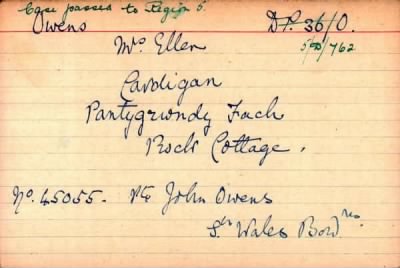 Case passed to Region 6.
Owens D.P. 36/O.
Mrs Ellen 5/D/762
Cardigan
Pantygrwndy Fach
Rock Cottage.
No. 45055. Pte John Owens
Sth Wales Bordrs